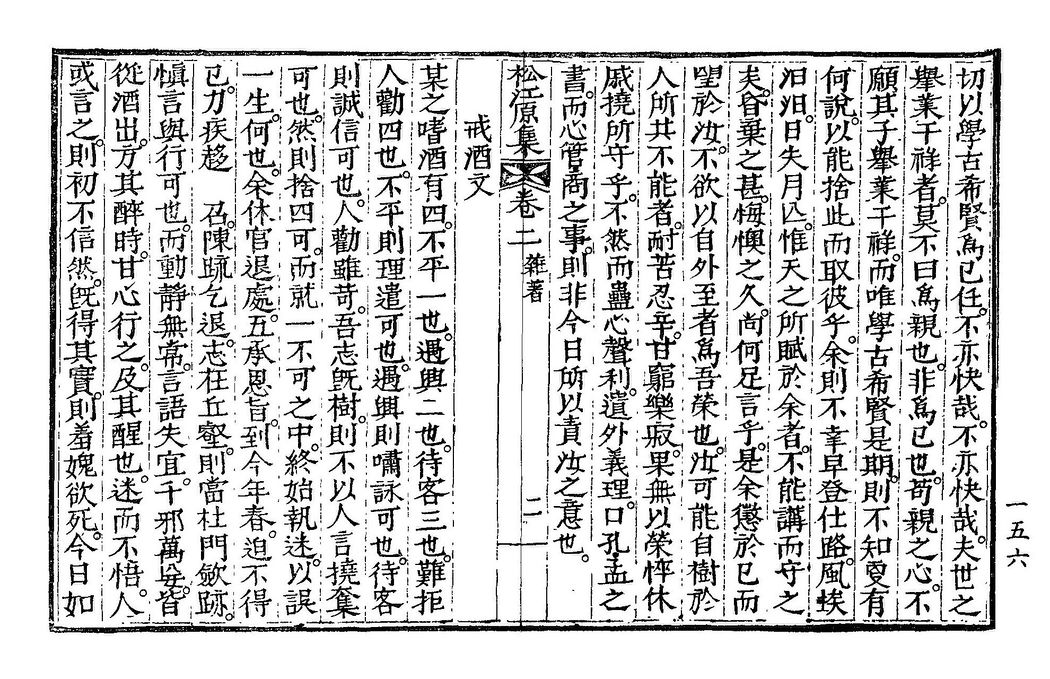 切以學古希賢爲己任。不亦快哉。不亦快哉。夫世之
擧業干祥者。莫不曰爲親也。非爲己也。苟親之心。不
願其子擧業干祥。而唯學古希賢是期。則不知夏有
何說。以能捨此而取彼乎。余則不幸早登仕路。風埃
汨汨。日失月亾。惟天之所賦於余者。不能講而守之
夫。容棄之甚。悔懊之久。尙何足言乎。是余懲於已而
望於汝。不欲以自外至者爲吾榮也。汝可能自樹於
人所共不能者。耐苦忍辛。甘窮樂寂。果無以榮悴休
戚撓所守乎。不然而蠱心聲利。遺外義理。口孔孟之
書。而心管商之事。則非今日所以責汝之意也。
松江原集 卷二 雜著 二
戒酒文
某之嗜酒有四。不平一也。遇興二也。待客三也。難拒
人勸四也。不平則理遣可也。遇興則嘯詠可也。待客
則誠信可也。人勸雖苛。吾志旣樹。則不以人言撓奪
可也。然則捨四可。而就一不可之中。終始執迷。以誤
一生。何也。余休官退處。五承恩旨。到今年春。迫不得
已。力疾趍 召。陳疏乞退。志在丘壑。則當杜門斂跡。
愼言與行可也。而動靜無常。言語失宜。千邪萬妄。皆
從酒出。方其醉時。甘心行之。及其醒也。迷而不悟。人
或言之。則初不信然。旣得其實。則羞媿欲死。今日如
一五六